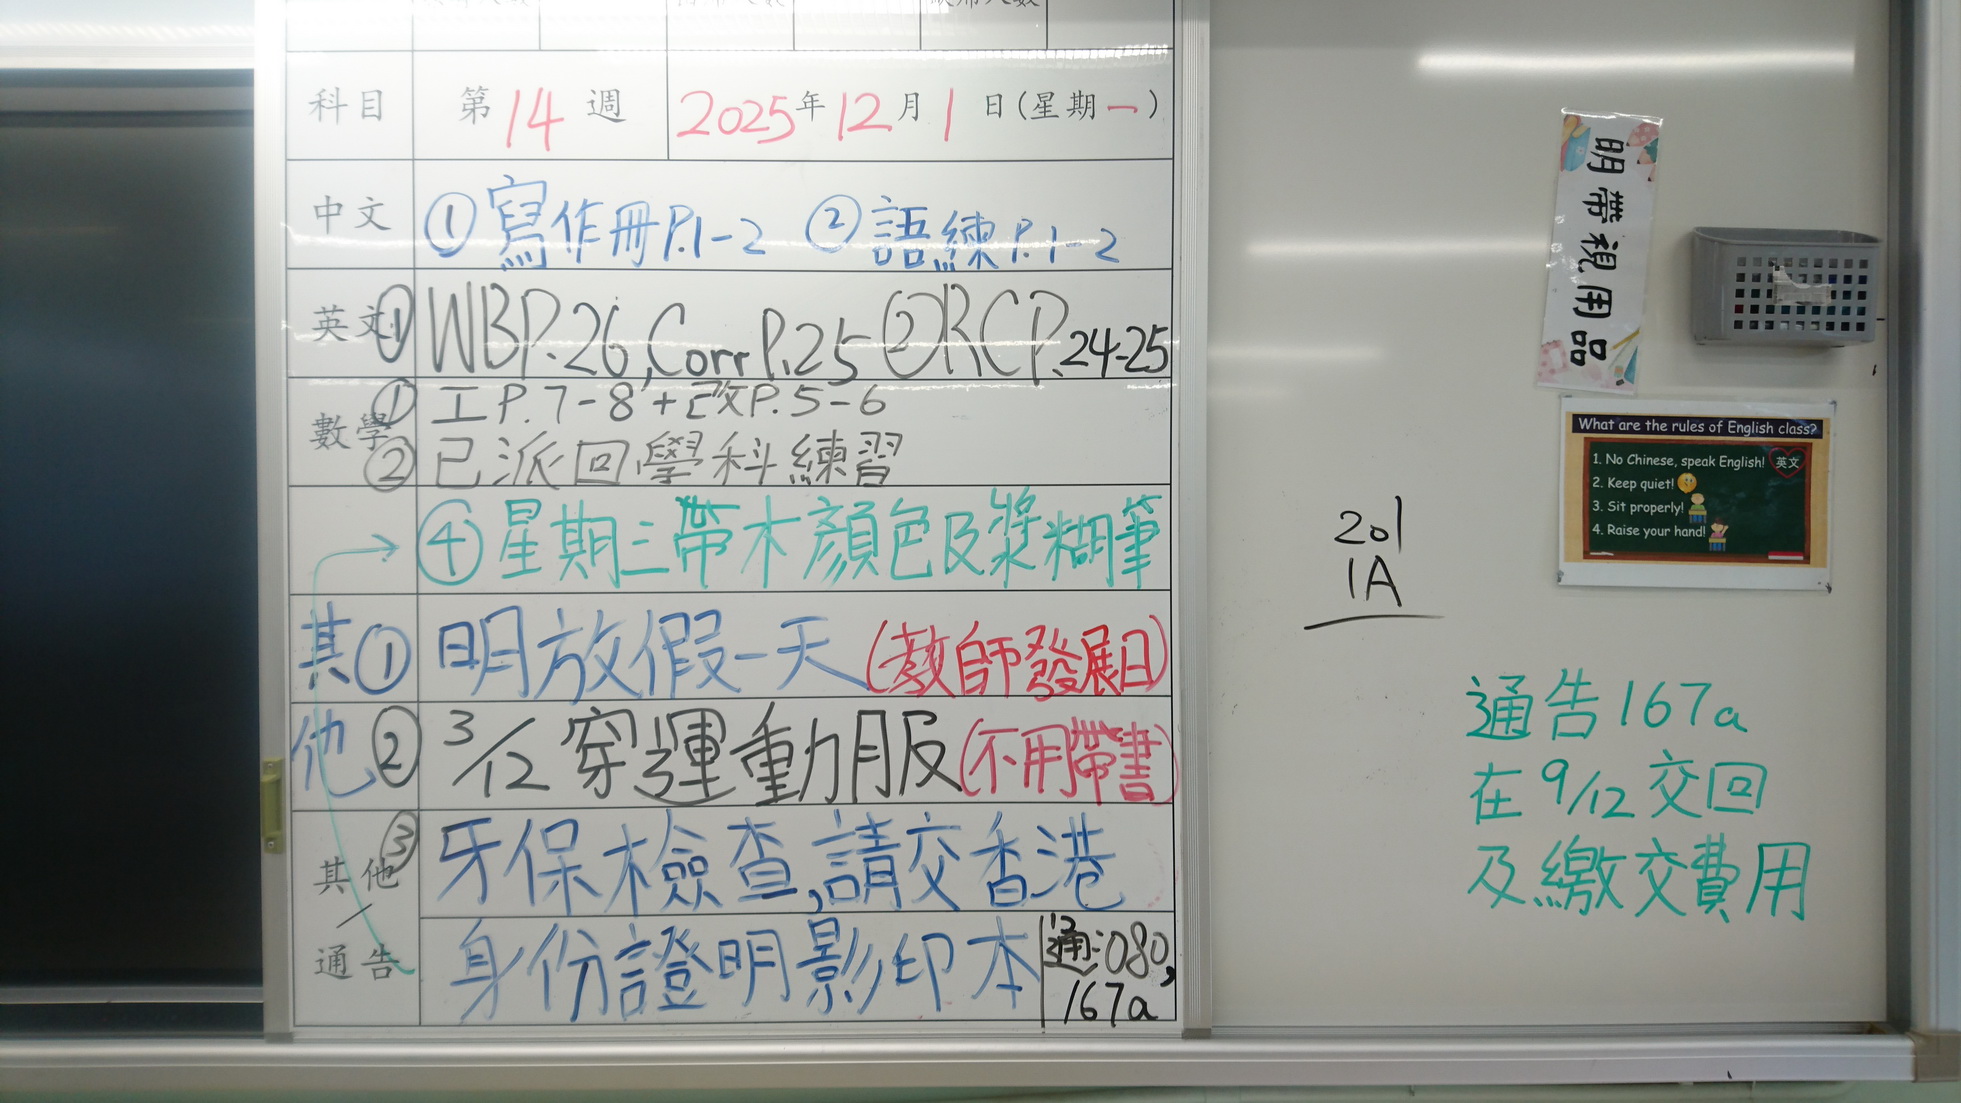 科目 第14週 2025年12月1日(星期一)
中文 ①寫作冊P.1-2 ②語練P.1-2
英文 ①WBP.26,Corr P.25 ②RCP.24-25
數學 ①工P.7-8+改P.5-6
②已派回學科練習
④星期三帶木顏色及漿糊筆
其他
①明放假一天(教師發展日)
②3/12穿運動服(不用帶書)
其他/通告
③牙保檢查,請交香港
身份證明影印本
通:080,
167a
明帶視用品
What are the rules of English class?
1. No Chinese, speak English! 英文
2. Keep quiet!
3. Sit properly!
4. Raise your hand!
201
1A
通告167a
在9/12交回
及繳交費用